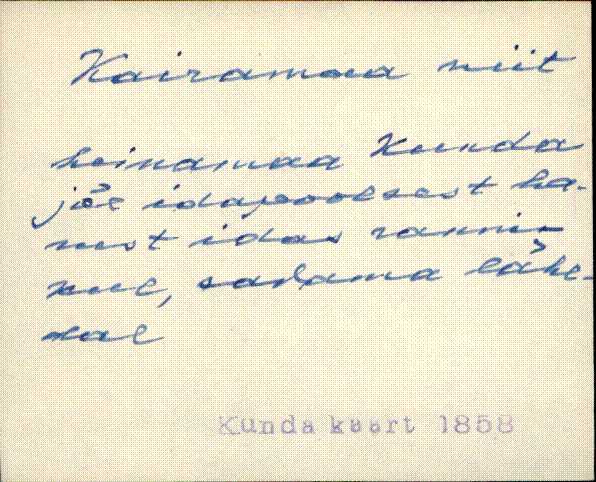 Kairamaa niit
heinamaa Kunda
jõe idapoolsest ha-
rust idas ranni-
kul, sadama lähe-
dal
Kunda kaart 1858